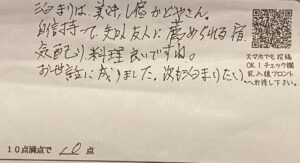 泊まりは、美味し宿かどやさん。
自信持って、知人友人に薦められる宿
気配り、料理良いですね。
お世話に成りました。次も泊まりたい
スマホでも投稿
OK！チェック欄
記入後フロント
へお渡し下さい。
10点満点で 10点